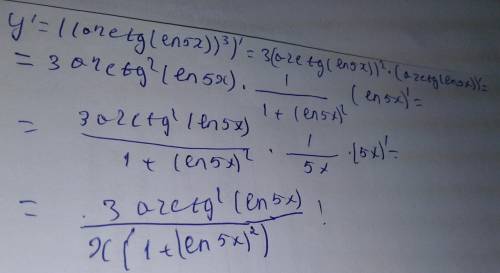 y' = ((arctg(ln5x))³)' = 3(arctg(ln5x))² · (arctg(ln5x))' =
= 3 arctg²(ln5x) · 1/(1 + (ln5x)²) (ln5x)' =
= 3 arctg²(ln5x)/(1 + (ln5x)²) · 1/5x · (5x)' =
= 3 arctg²(ln5x)/(x(1 + (ln5x)²)) !